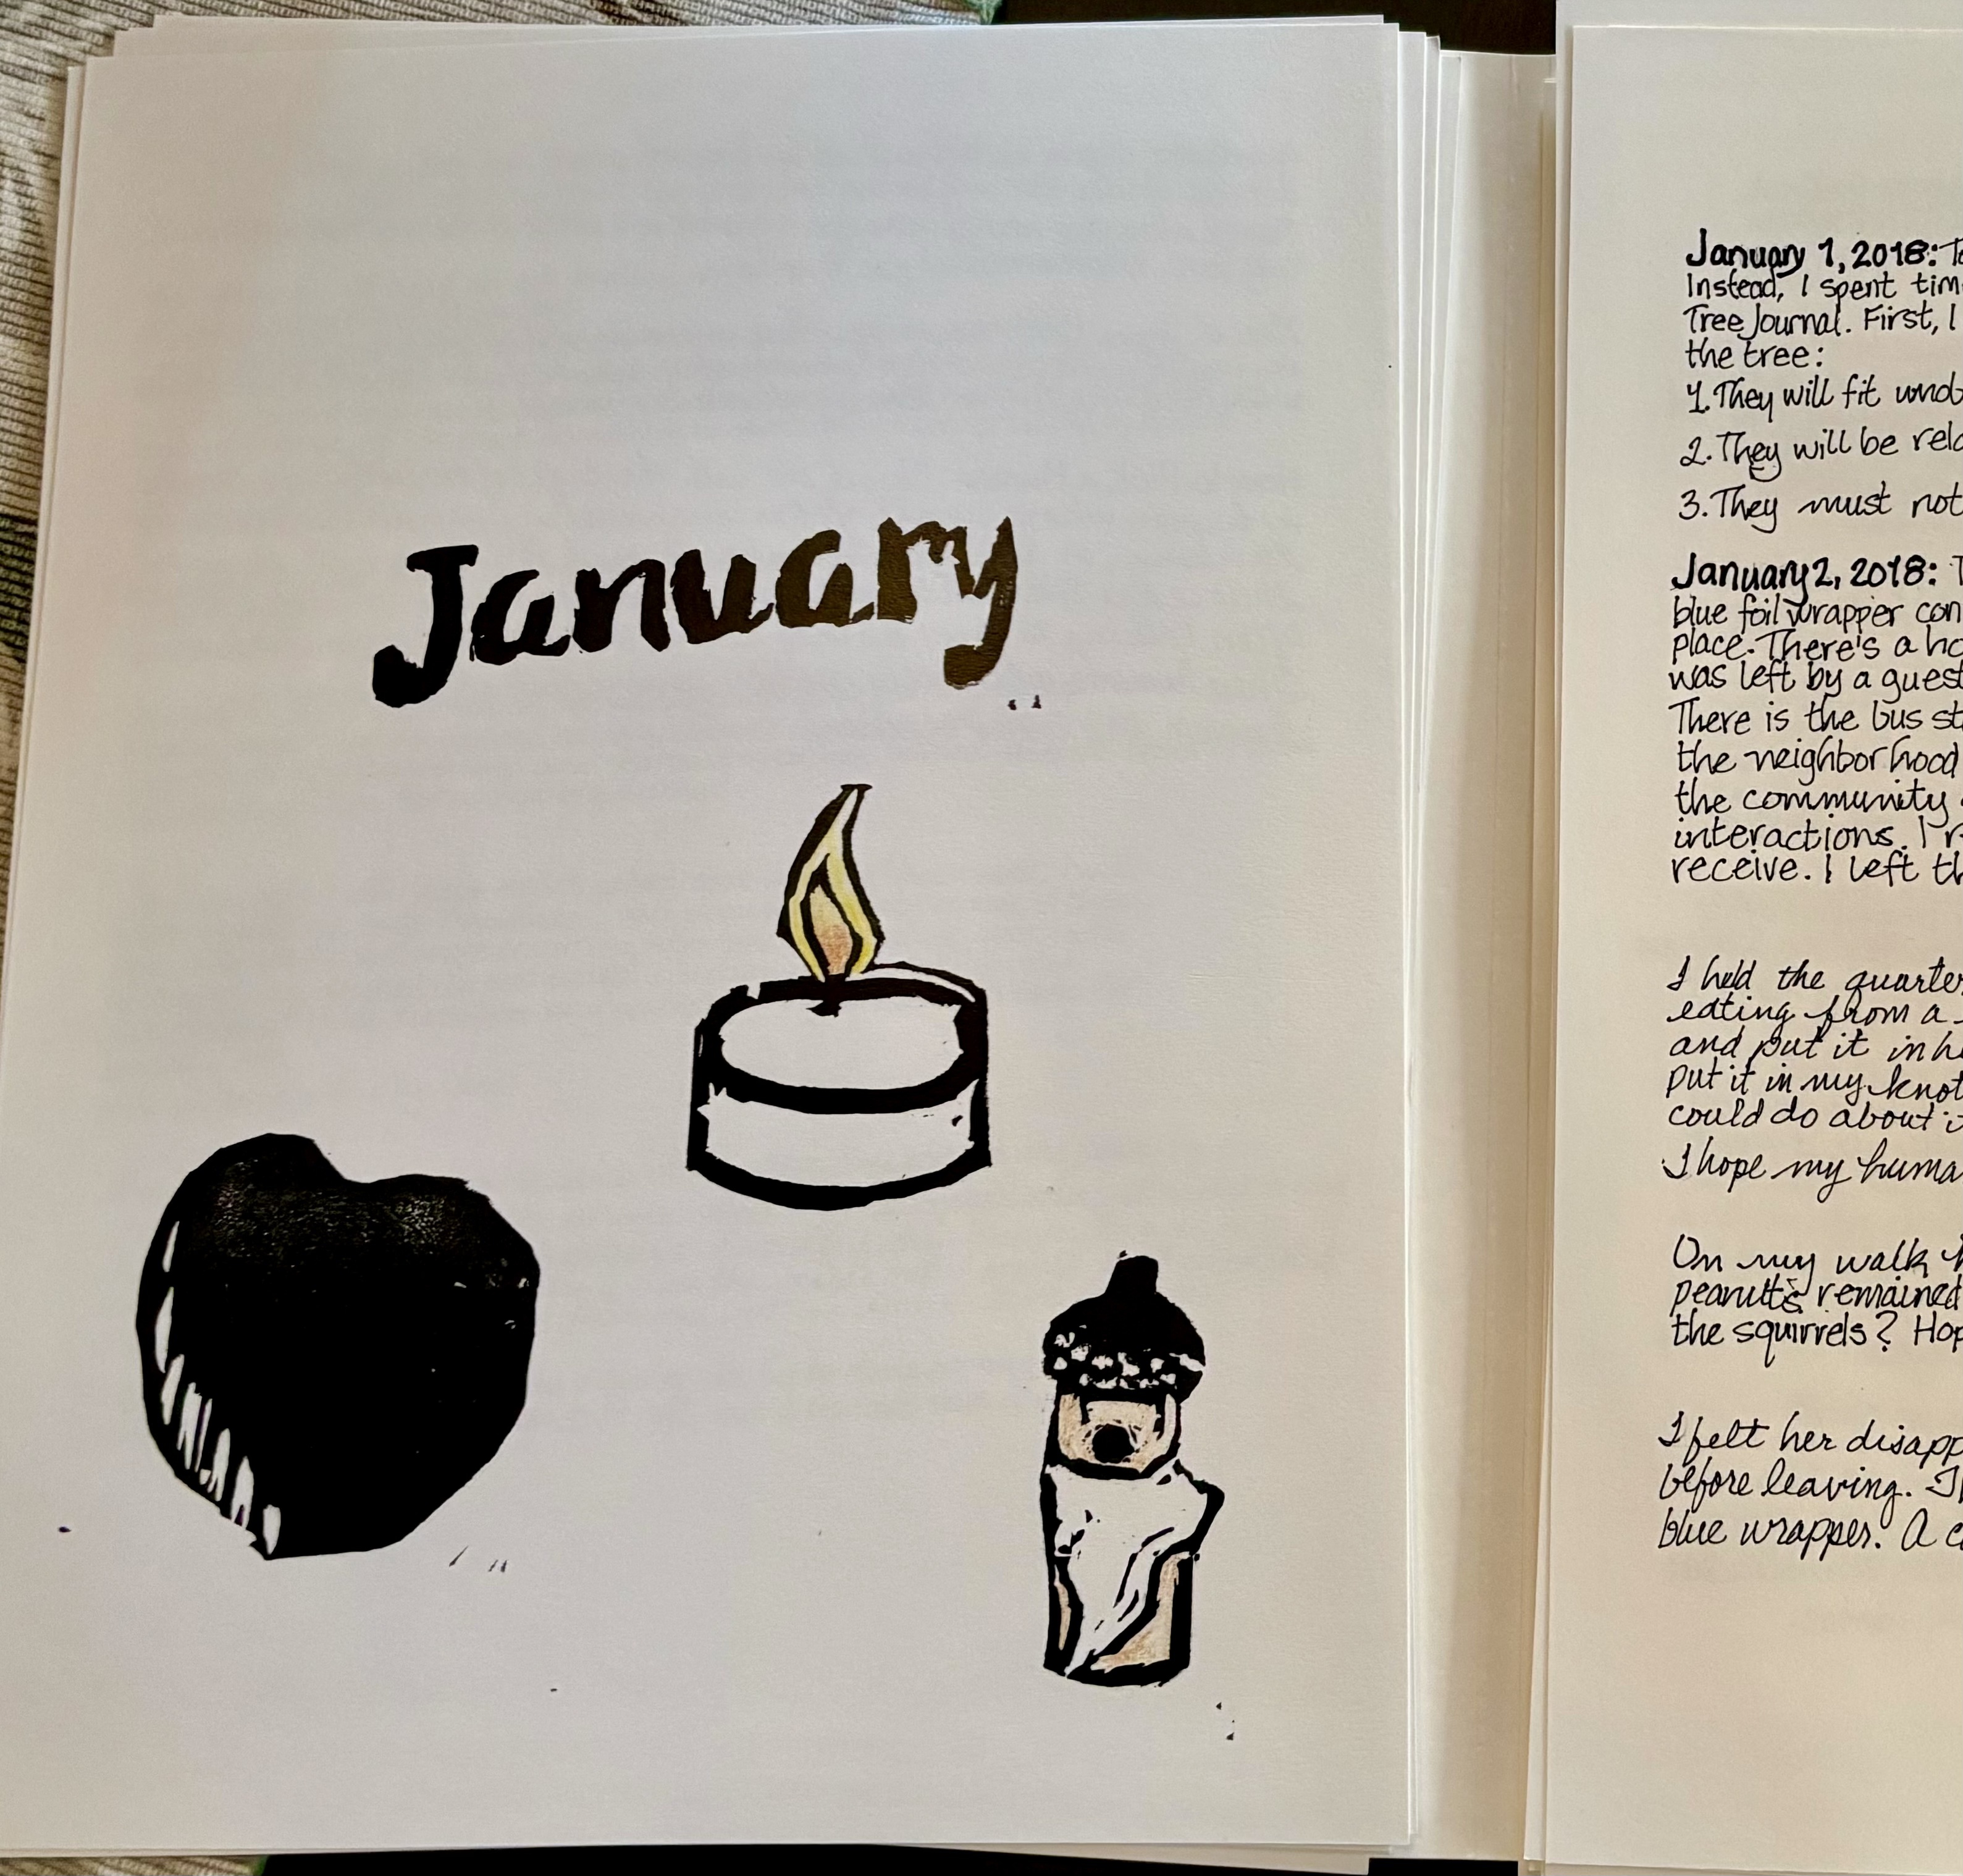 January
January 1, 2018:
Instead, I spent
Tree Journal. First, I
the tree:
1. They will fit
2. They will be
3. They must not
January 2, 2018:
blue foil wrapper
place. There's a
was left by a guest
There is the bus
the neighborhood
the community
interactions. I
receive. I left
I held the
eating from a
and put it in
put it in my
could do about
I hope my
On my walk
peanuts remained
the squirrels?
I felt her
before leaving.
blue wrapper. A